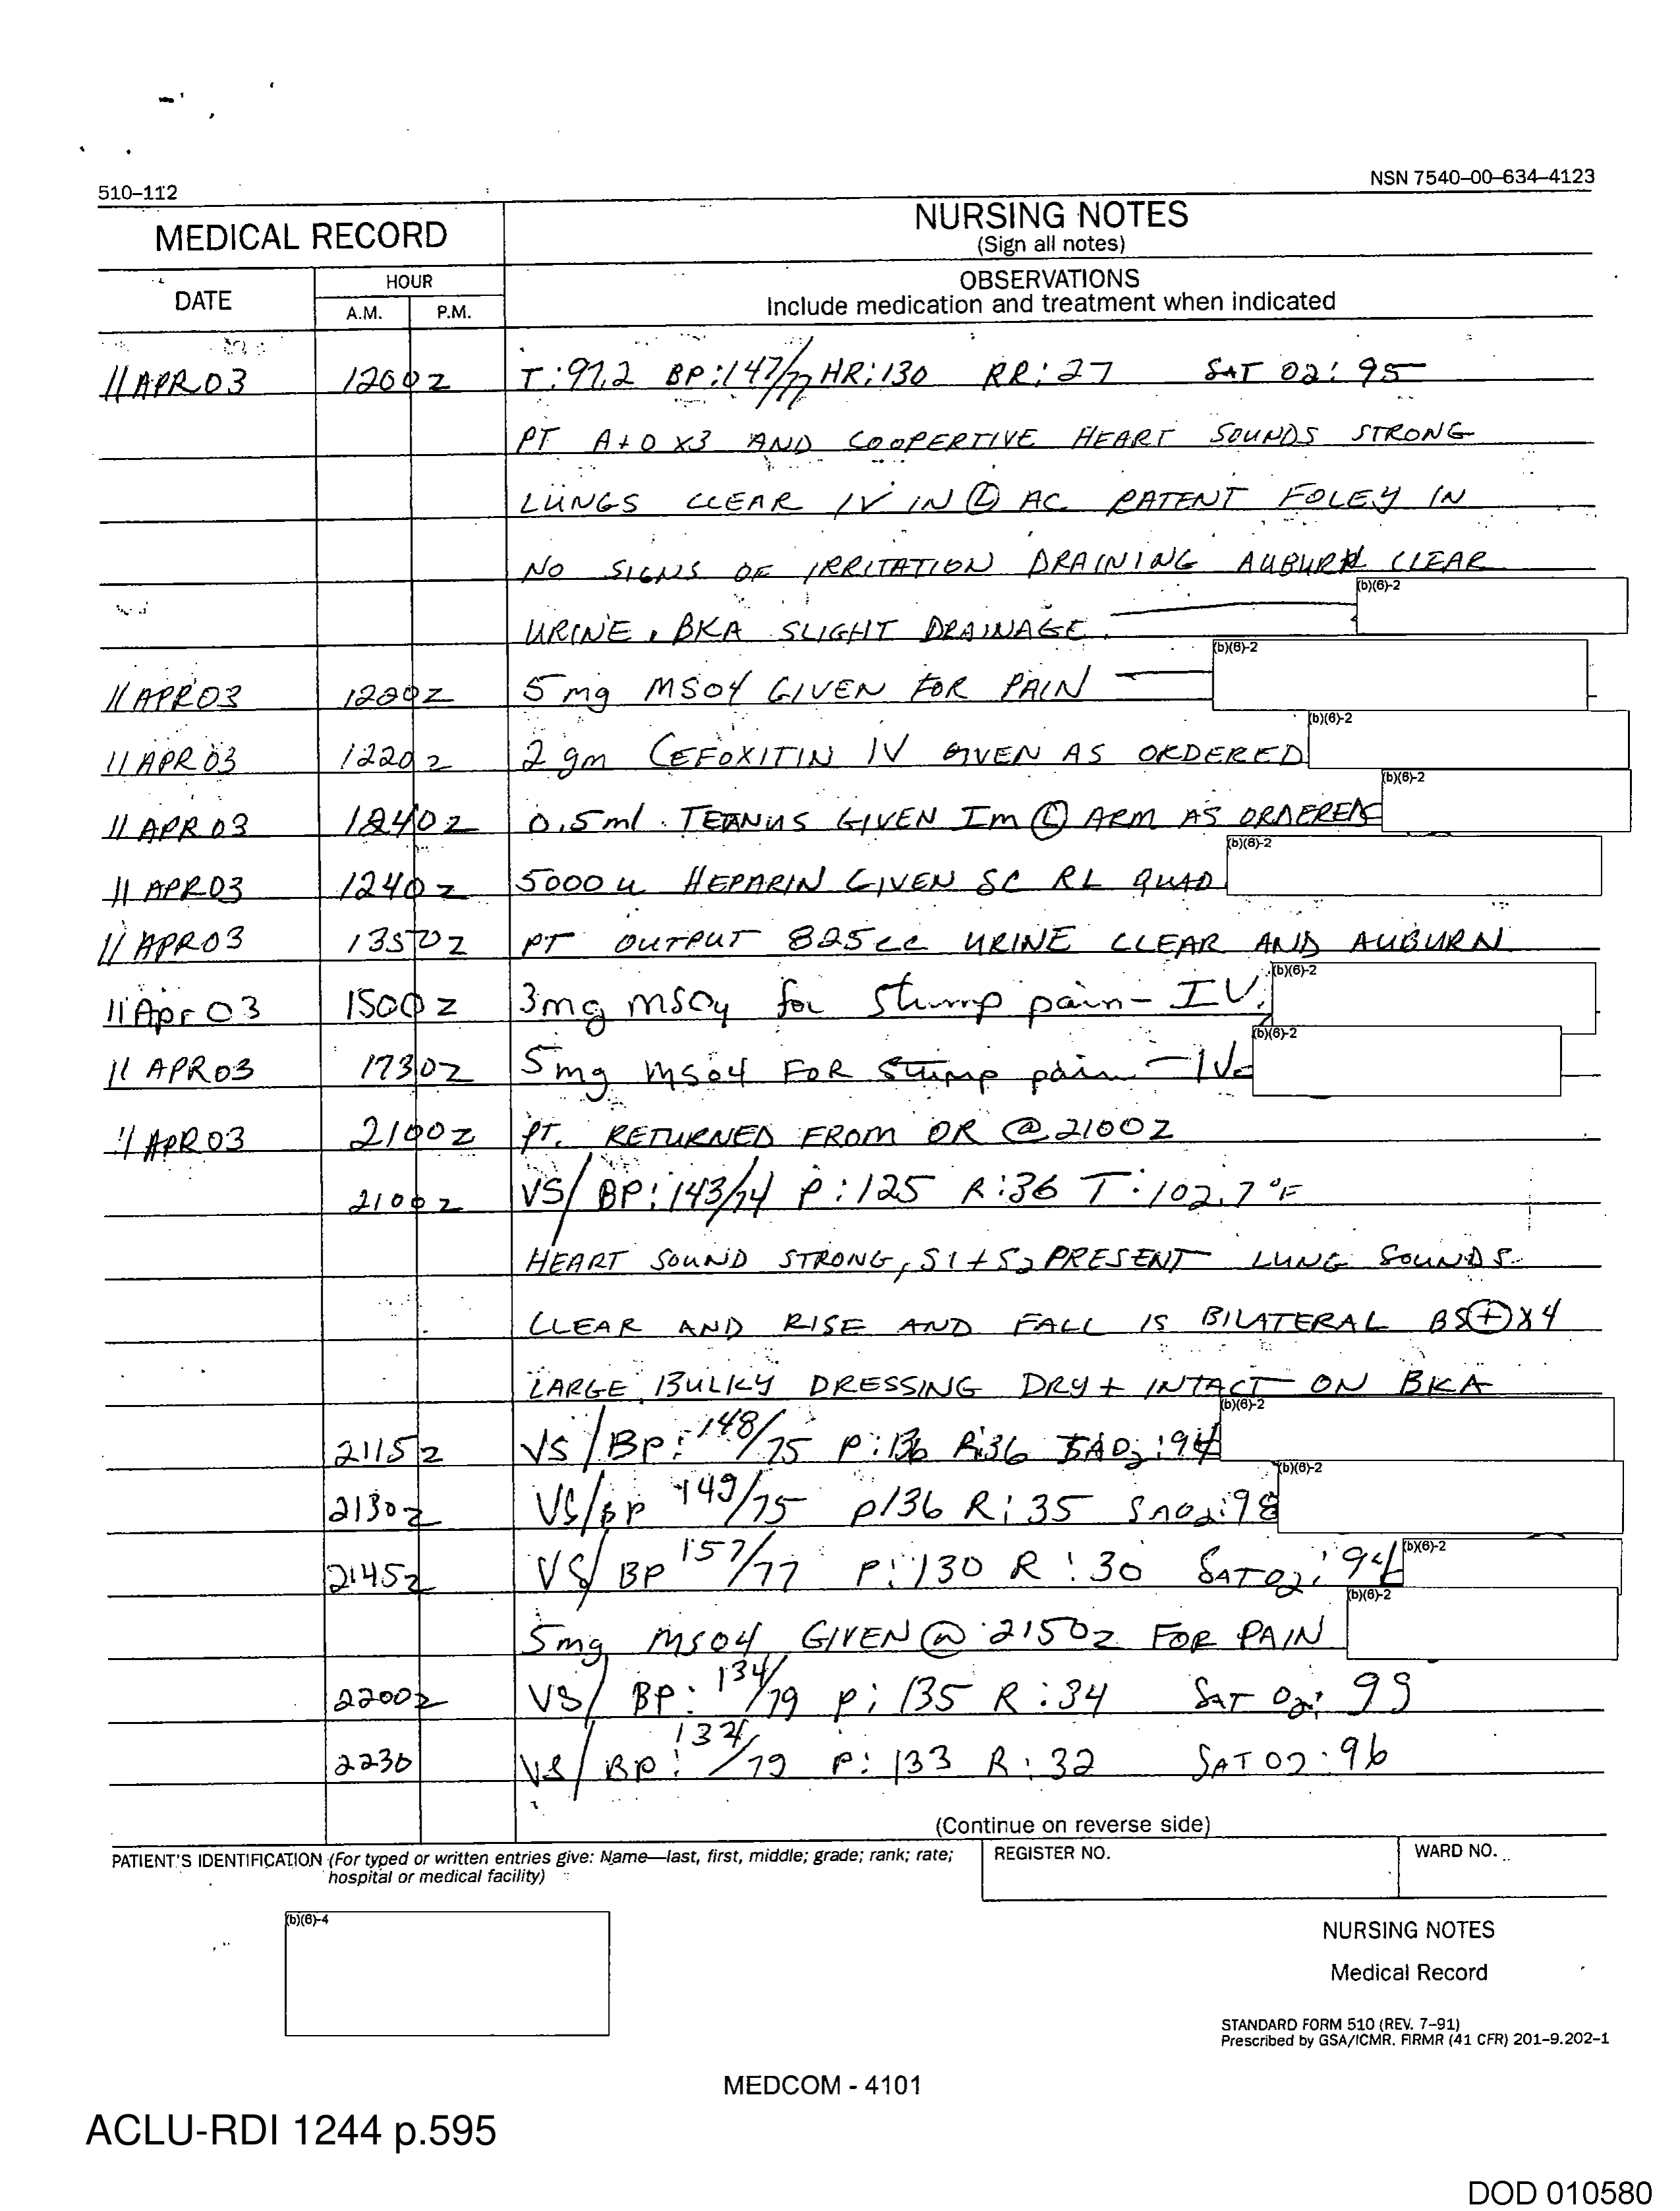 510-112
NSN 7540-00-634-4123
MEDICAL RECORD
NURSING NOTES
(Sign all notes)
DATE
HOUR
A.M. P.M.
OBSERVATIONS
Include medication and treatment when indicated
11 APR 03 1200z T: 97.2 BP: 147/77 HR: 130 RR: 27 SAT O2: 95
PT A+O X3 AND COOPERTIVE HEART SOUNDS STRONG
LUNGS CLEAR IV IN Ⓛ AC PATENT FOLEY IN
NO SIGNS OF IRRITATION DRAINING AUBURN CLEAR
URINE. BKA SLIGHT DRAINAGE. (b)(6)-2
11 APR 03 1200z 5 mg MSO4 GIVEN FOR PAIN (b)(6)-2
11 APR 03 1220z 2 gm CEFOXITIN IV GIVEN AS ORDERED (b)(6)-2
11 APR 03 1240z 0.5ml TETANUS GIVEN Im Ⓛ ARM AS ORDERED (b)(6)-2
11 APR 03 1240z 5000 u HEPARIN GIVEN SC RL QUAD (b)(6)-2
11 APR 03 1350z PT OUTPUT 825cc URINE CLEAR AND AUBURN
11 Apr 03 1500z 3mg MSO4 for stump pain - IV. (b)(6)-2
11 APR 03 1730z 5mg MSO4 FOR stump pain - IV (b)(6)-2
11 APR 03 2100z PT. RETURNED FROM OR @ 2100Z
2100z VS/ BP: 143/74 P: 125 R: 36 T: 102.7 °F
HEART SOUND STRONG, S1 + S2 PRESENT LUNG SOUNDS
CLEAR AND RISE AND FALL IS BILATERAL BS ⊕ X4
LARGE BULKY DRESSING DRY + INTACT ON BKA
2115z VS/ BP: 148/75 P: 136 R: 36 SAO2: 94 (b)(6)-2
2130z VS/BP 149/75 P 136 R: 35 SAO2: 98 (b)(6)-2
2145z VS/ BP 157/77 P: 130 R: 30 SAT O2: 94 (b)(6)-2
5mg MSO4 GIVEN @ 2150z FOR PAIN (b)(6)-2
2200z VS/ BP: 134/79 P: 135 R: 34 SAT O2: 99
2230 VS/ BP: 132/79 P: 133 R: 32 SAT O2: 96
(Continue on reverse side)
PATIENT'S IDENTIFICATION (For typed or written entries give: Name—last, first, middle; grade; rank; rate;
hospital or medical facility)
REGISTER NO.
WARD NO.
(b)(6)-4
NURSING NOTES
Medical Record
STANDARD FORM 510 (REV. 7-91)
Prescribed by GSA/ICMR. FIRMR (41 CFR) 201-9.202-1
MEDCOM - 4101
ACLU-RDI 1244 p.595
DOD 010580